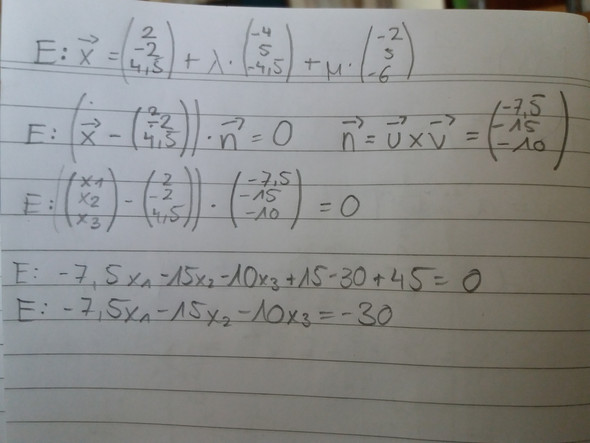 E: x⃗ = (2 -2 4,5) + λ · (-4 5 -4,5) + μ · (-2 5 -6)
E: (x⃗ - (2 -2 4,5)) · n⃗ = 0 n⃗ = u⃗ × v⃗ = (-7,5 -15 -10)
E: ((x1 x2 x3) - (2 -2 4,5)) · (-7,5 -15 -10) = 0
E: -7,5x₁ -15x₂ -10x₃ +15 -30 +45 = 0
E: -7,5x₁ -15x₂ -10x₃ = -30